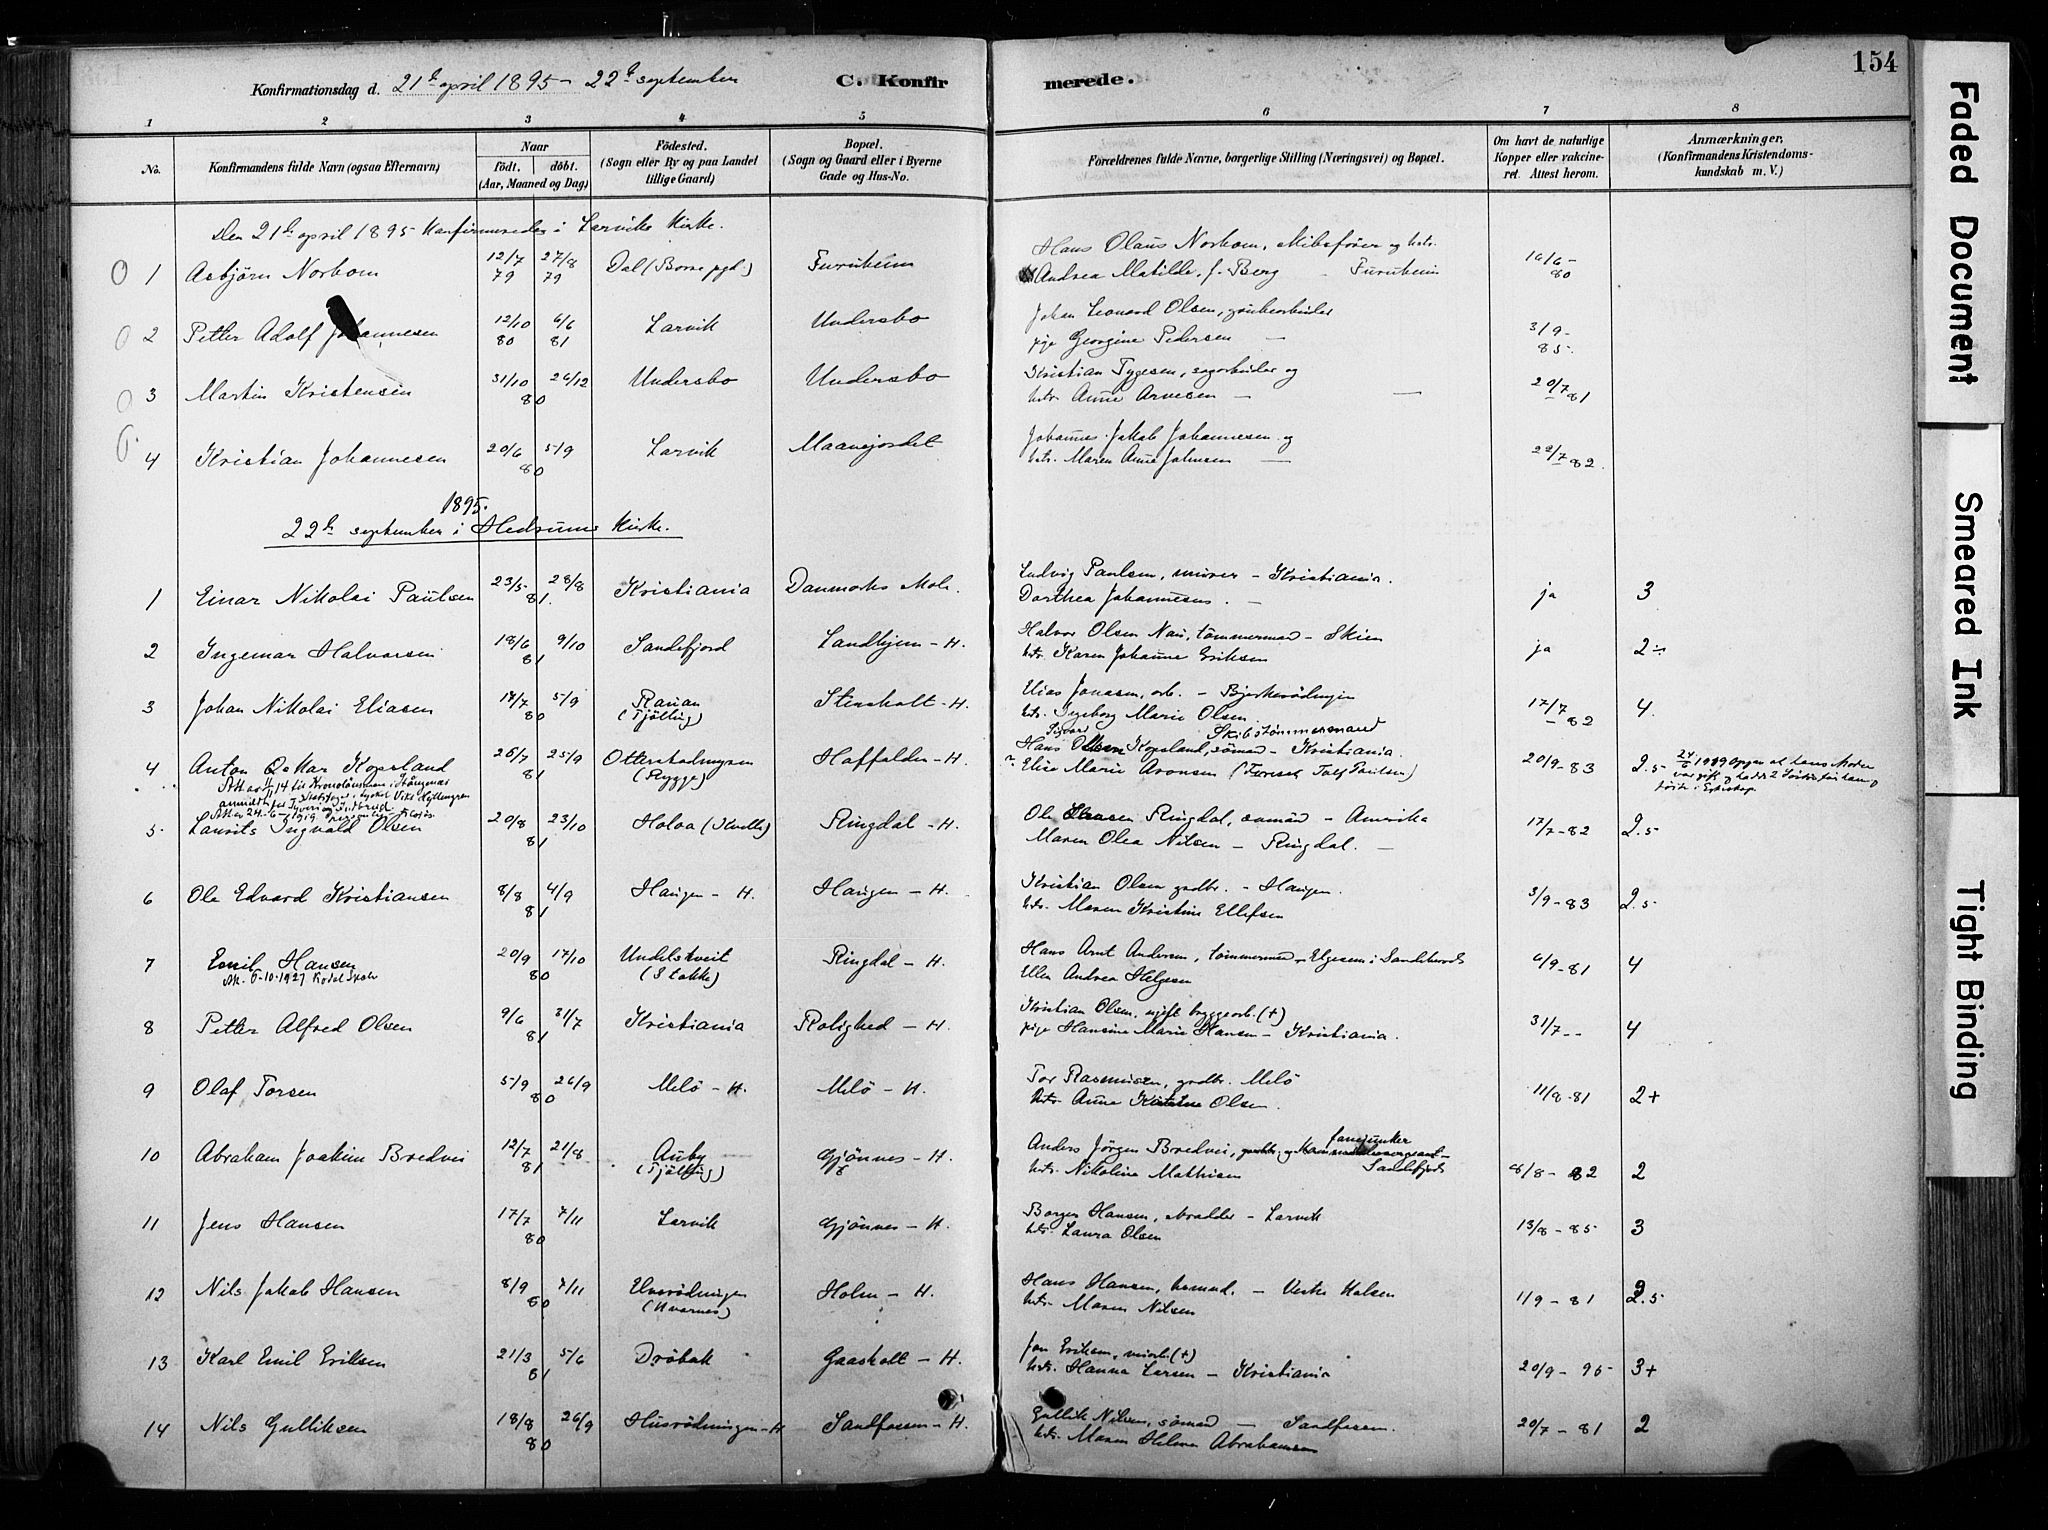 154
Konfirmationsdag d. 21de april 1895 – 22de september C. Konfirmerede.
1 2 3 4 5 6 7 8
No. Konfirmandens fulde Navn (ogsaa Efternavn) Naar født. døbt. (Aar, Maaned og Dag) Födested. (Sogn eller By og paa Landet tillige Gaard) Bopæl. (Sogn og Gaard eller i Byerne Gade og Hus-No. Forældrenes fulde Navne, borgerlige Stilling (Næringsvei) og Bopæl. Om havt de naturlige Kopper eller vakcineret. Attest herom. Anmærkninger, (Konfirmandens Kristendomskundskab m. V.)
Den 21de april 1895 konfirmeredes i Larviks Kirke.
1 Asbjørn Norhom 12/7 79 27/8 79 Dal (Borre pgd.) Furuheim Hans Olaus Norhom, skibsfører og hstr. Andrea Matilde, f. Berg – Furuheim 16/6 – 80
2 Petter Adolf Johannesen 12/10 80 6/6 81 Larvik Undersbo Johan Leonard Olsen, pige Georgine Pedersen – 3/9 – 85
3 Martin Kristensen 31/10 26/12 80 Undersbo Undersbo Kristian Tygesen, sagarbeider og hstr. Anne Arvesen – 20/7 81
4 Kristian Johannesen 20/6 5/9 80 Larvik Maanejordet Johannes Jakob Johannesen og hstr. Maren Anne Johnsen – 22/7 82.
1895.
22de september i Hedrums Kirke.
1 Einar Nikolai Paulsen 23/5 28/8 81. Kristiania Danmarks Ludvig Paulsen, murer – Kristiania. Dorthea Johannesen. – ja 3
2 Ingemar Halvorsen 18/6 9/10 81 Sandefjord Landhjem – H. Halvor Olsen Nau, tømmermand – Skien hstr. Karen Johanne Eriksen ja 2÷
3 Johan Nikolai Eliasen 17/7 5/9 80 Rauan (Tjølling) Stensholt – H. Elias Jonassen, arb. – Bjerkerødningen hstr. Ingeborg Marie Olsen 17/7 – 82 4.
4 Anton Oskar Kopsland 26/7 25/9 81 Ottersholmgren (Rygge) Haffalden – H. Hans Sigvard Kopsland, sømand – Skibstømmermand Kristiania. Elise Marie Aronsen 20/9 – 83 2.5
5 Laurits Ingvald Olsen 20/8 23/10 81 Holva (Kvelle) Ringdal – H. Ole Hansen Ringdal, sømand – Amerika Maren Olea Nilsen – Ringdal. – 17/7 – 82 2.5
6 Ole Edvard Kristiansen 8/8 4/9 81 Haugen – H. Haugen – H. Kristian Olsen gadbr. – Haugen. hstr. Maren Kristine Ellefsen 3/9 – 83 2.5
7 Emil Hansen 20/9 17/10 80 Undelstveit (Stokke) Ringdal – H. Hans Arnt Andersen, tømmermand, Elgesem i Sandeherred Ellen Andrea Helgesen 6/9 – 81 4
Att. 6-10-1927 Kodal Skole
8 Petter Alfred Olsen 9/6 31/7 81 Kristiania Rolighed – H. Kristian Olsen, ugift bryggearb. (+) pige Hansine Marie Hansen – Kristiania. 31/7 – – 4
9 Olaf Torsen 5/9 26/9 80 Melø – H. Melø – H. Tor Rasmussen, gadbr. Melø hstr. Anne Kristine Olsen. 11/8 – 81 2+
10 Abraham Joakim Bredvei 12/7 21/8 81 Auby (Tjølling) Gjønnes – H. Anders Jørgen Bredvei, gaardbr. og fanejunker – Sandefjord hstr. Nikoline Mathisen 8/8 – 82 2
11 Jens Hansen 17/7 7/11 80 Larvik Gjønnes – H. Borger Hansen, skradder – Larvik hstr. Laura Olsen 13/8 – 85 3
12 Nils Jakob Hansen 8/9 7/11 80 (Hvarnes) Holm – H. Hans Hansen, husmd. – Vestre Holsen hstr. Maren Nilsen 11/9 – 81 2.5
13 Karl Emil Eriksen 21/3 5/6 81 Drøbak Gaasholt – H. Jon Eriksen, (+) hstr. Hanna Larsen – Kristiania 20/9 – 95 3+
14 Nils Gulliksen 18/8 26/9 80 Husrødningen – H Sandfossen – H Gullik Nilsen, sømand – Sandfossen. hstr. Maren Helene Abrahamsen 20/7 – 81 2
Faded Document
Smeared Ink
Tight Binding